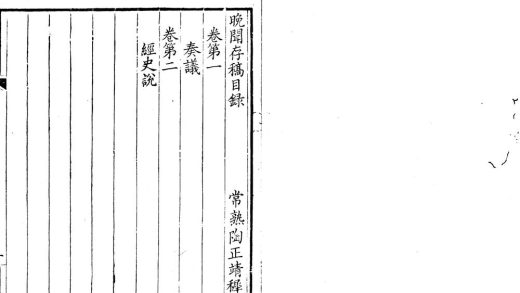 晚聞存稿目錄
常熟陶正靖穉
卷第一
奏議
卷第二
經史說